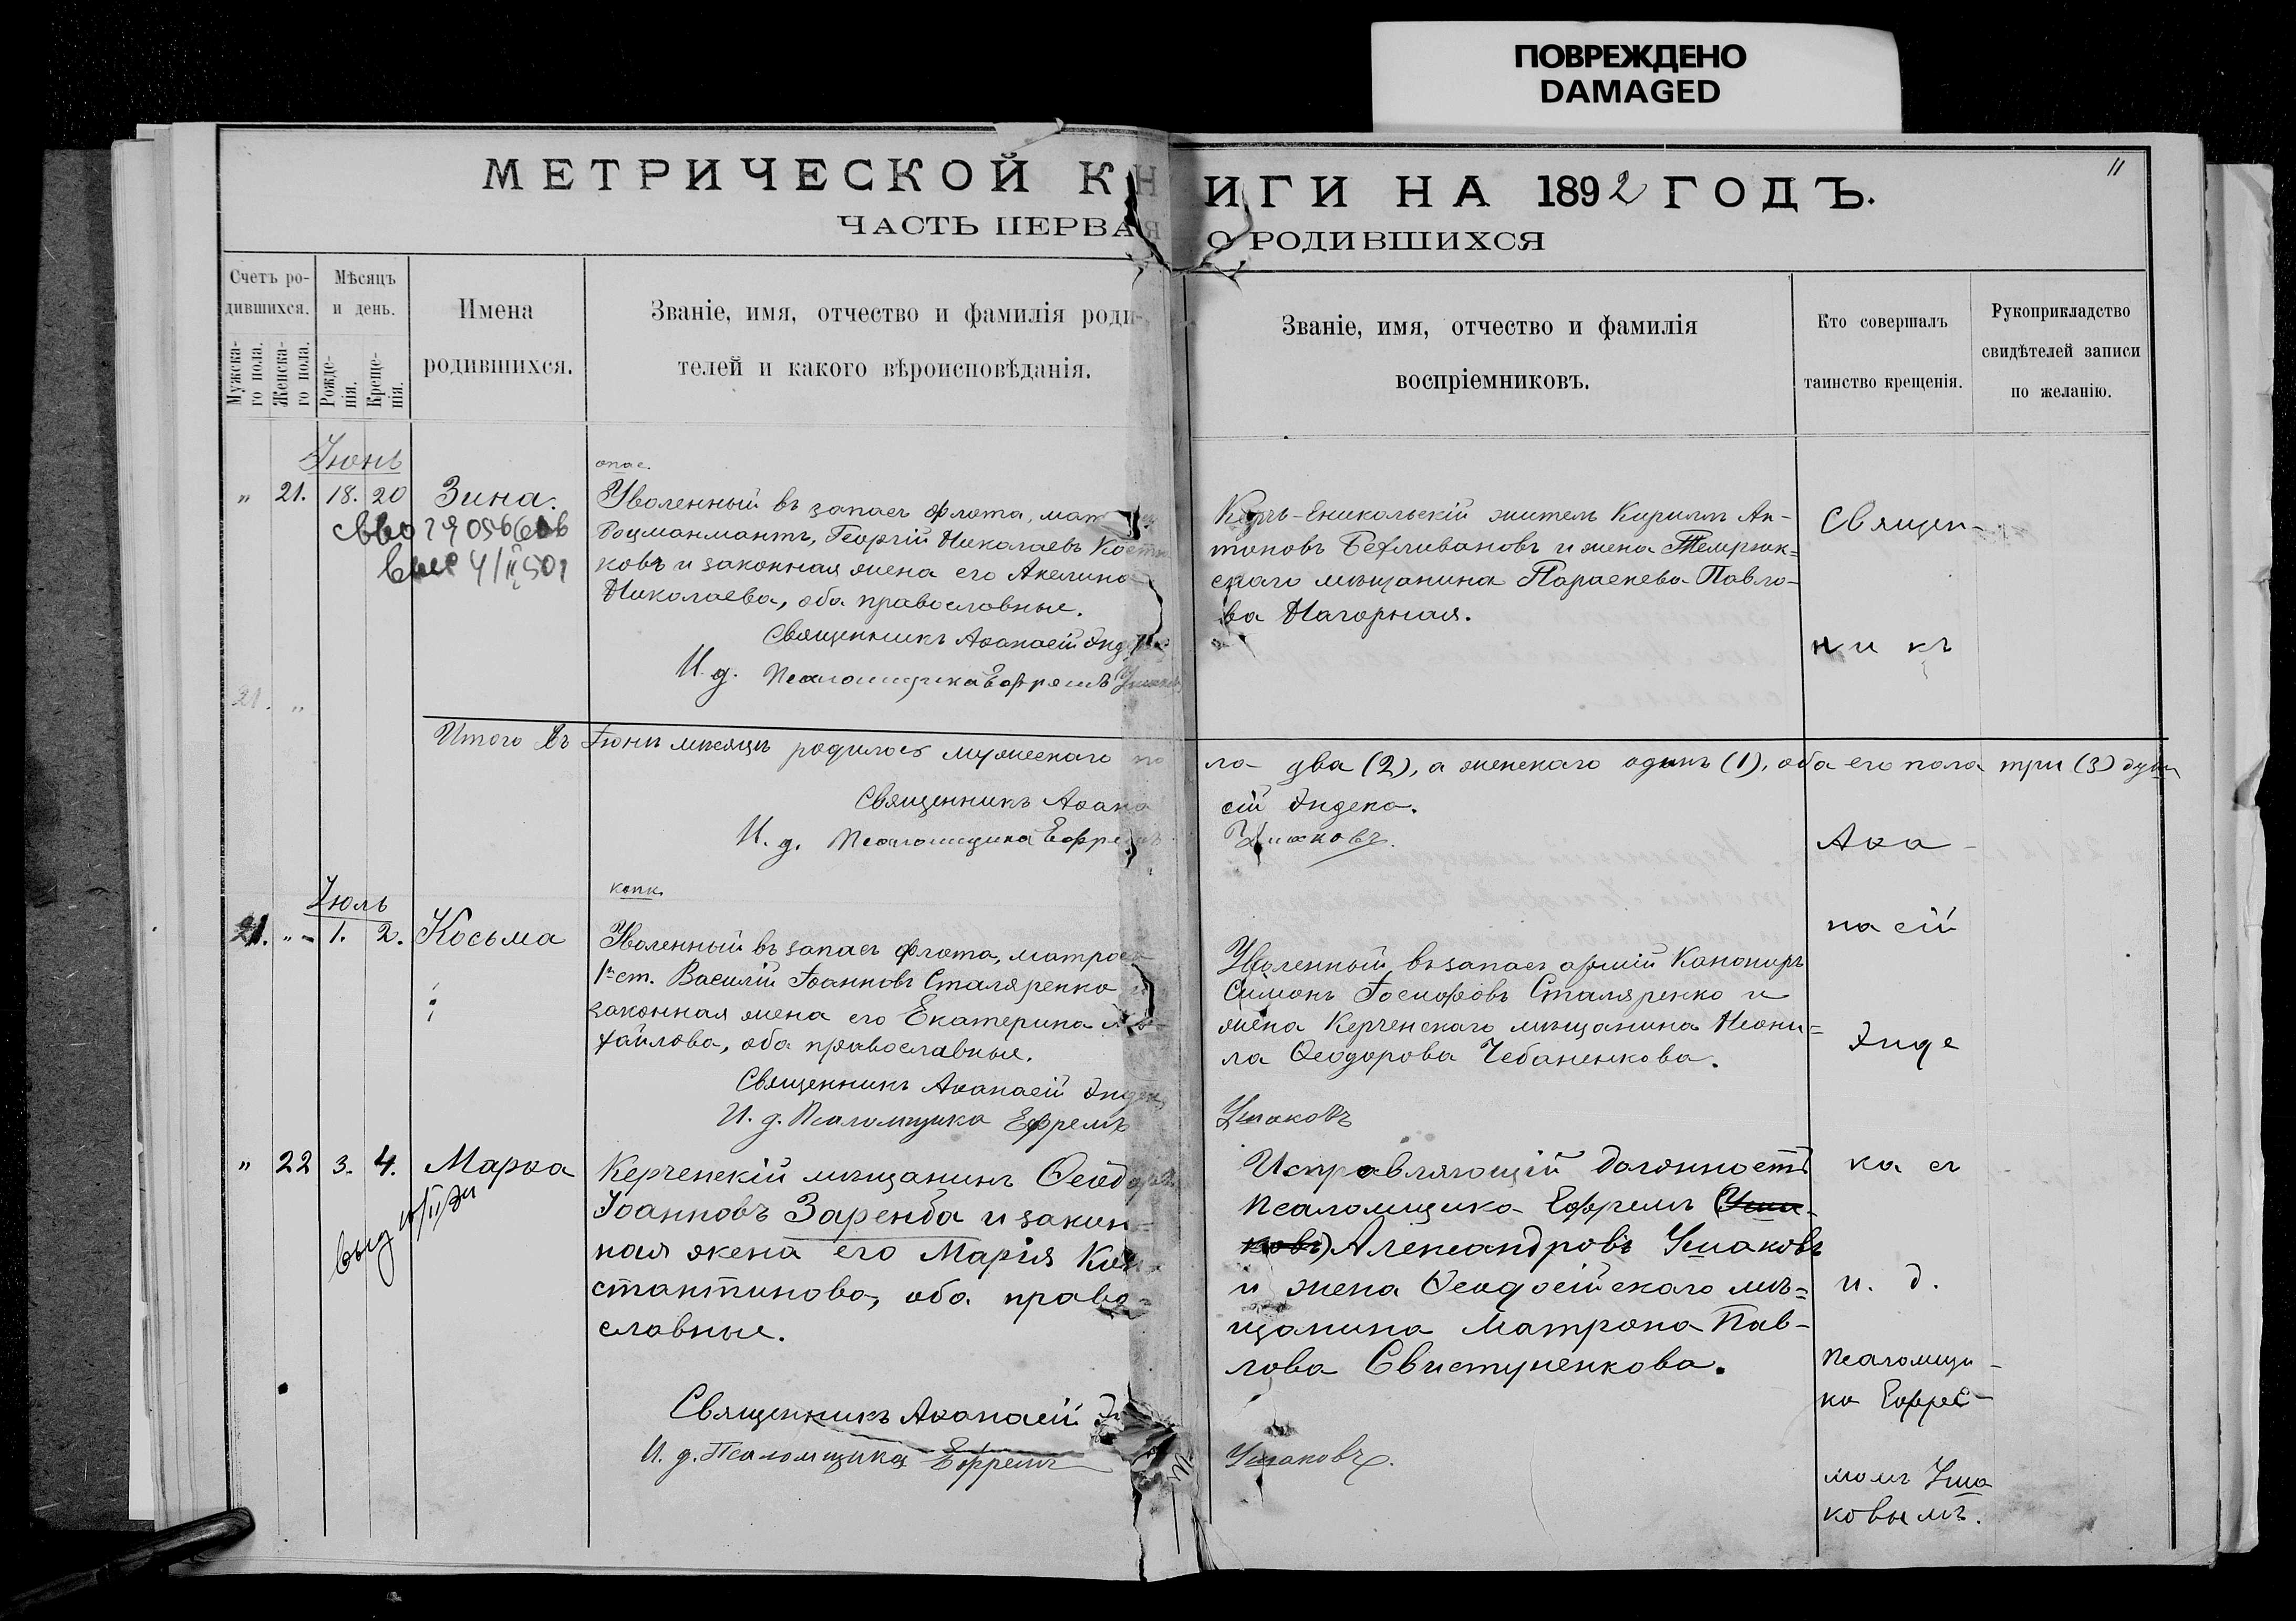 ПОВРЕЖДЕНО
DAMAGED
11
МЕТРИЧЕСКОЙ КНИГИ НА 1892 ГОДЪ.
ЧАСТЬ ПЕРВАЯ О РОДИВШИХСЯ
Счетъ ро-
дившихся.
Мужска-
го пола.
Женска-
го пола.
Мѣсяцъ
и день.
Рожде-
нія.
Креще-
нія.
Имена
родившихся.
Званіе, имя, отчество и фамилія роди-
телей и какого вѣроисповѣданія.
Званіе, имя, отчество и фамилія
воспріемниковъ.
Кто совершалъ
таинство крещенія.
Рукоприкладство
свидѣтелей записи
по желанію.
Іюнь
" 21. 18. 20 Зина.
Уволенный въ запасъ флота,
Боцманматъ, Георгій Николаевъ
ковъ и законная жена его Акелина
Николаева, оба православные.
Священникъ Аѳанасій
И. д. Псаломщика Ефремъ Ушаковъ
Керчь-Еникольскій житель Кирилъ Ан-
тоновъ и жена Темрюк=
скаго мѣщанина Параскева Павло-
ва Нагорная.
21. "
Итого въ Іюнѣ мѣсяцѣ родилось мужескаго по
ла два (2), а женскаго одинъ (1), оба его пола три (3) души
Священникъ Аѳана
сій Индека.
И. д. Псаломщика Ефремъ
Ушаковъ.
Іюль
21. " 1. 2. Косьма
Уволенный въ запасъ флота, матросъ
1й ст. Василій Іоанновъ Сталяренко и
законная жена его Екатерина Ми-
хайлова, оба православные.
Священникъ Аѳанасій
И. д. Псаломщика Ефремъ
Уволенный въ запасъ армій Канониръ
Симонъ Іосифовъ Сталяренко и
жена Керченскаго мѣщанина Неони=
ла Ѳеодорова Чебаненкова.
Ушаковъ
" 22 3. 4. Марѳа
Керченскій мѣщанинъ Ѳеодоръ
Іоанновъ Заренба и закон=
ная жена его Марія Кон-
стантинова, оба право=
славные.
Священникъ Аѳанасій
И. д. Псаломщика Ефремъ
Исправляющій должность
Псаломщика Ефремъ (Уша-
ковъ) Александровъ Ушаковъ
и жена Ѳеодосійскаго мѣ=
щанина Матрона Пав-
лова Свистуненкова.
Ушаковъ.
Священ-
никъ
Аѳа-
насій
Инде
ка съ
и. д.
Псаломщи-
ка Ефре-
момъ Уша
ковымъ.